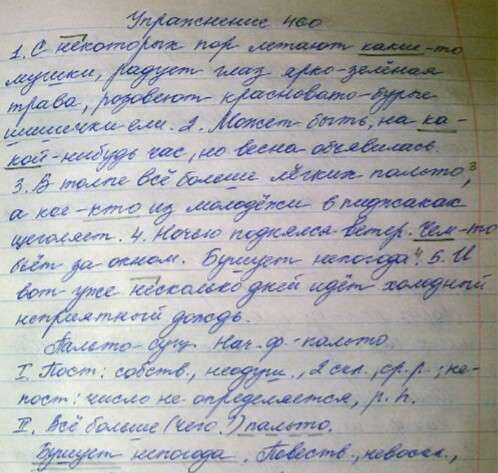 Упражнение 460
1. С некоторых пор летают какие-то
мушки, радует глаз ярко-зелёная
трава, розовеют красновато-бурые
шишечки ели. 2. Может быть, на ка-
кой-нибудь час, но весна объявилась.
3. В толпе всё больше лёгких пальто,³
а кое-кто из молодёжи в пиджаках
щеголяет. 4. Ночью поднялся ветер. Чем-то
бьёт за окном. Бушует непогода⁴. 5. И
вот уже несколько дней идёт холодный
неприятный дождь.
Пальто-сущ. Нач. ф-пальто
I. Пост: собств., неодуш., 2 скл., ср. р.; не-
пост: число не-определяется, р. п.
II. Всё больше (чего?) пальто.
Бушует непогода. Повеств., невоскл.,